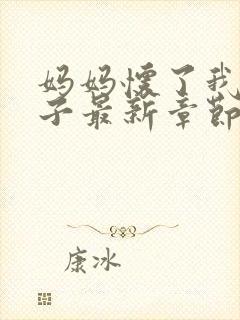 妈妈怀了我
子最新章节
康冰